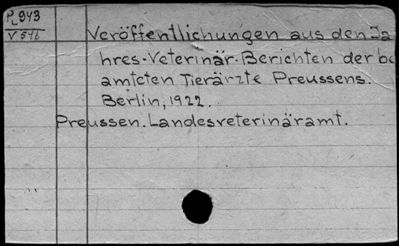 P 943
V 546
Veröffentlichungen aus den Ja
hres-Veterinär-Berichten der be
amteten Tierärzte Preussens.
Berlin, 1922.
Preussen. Landesveterinäramt.